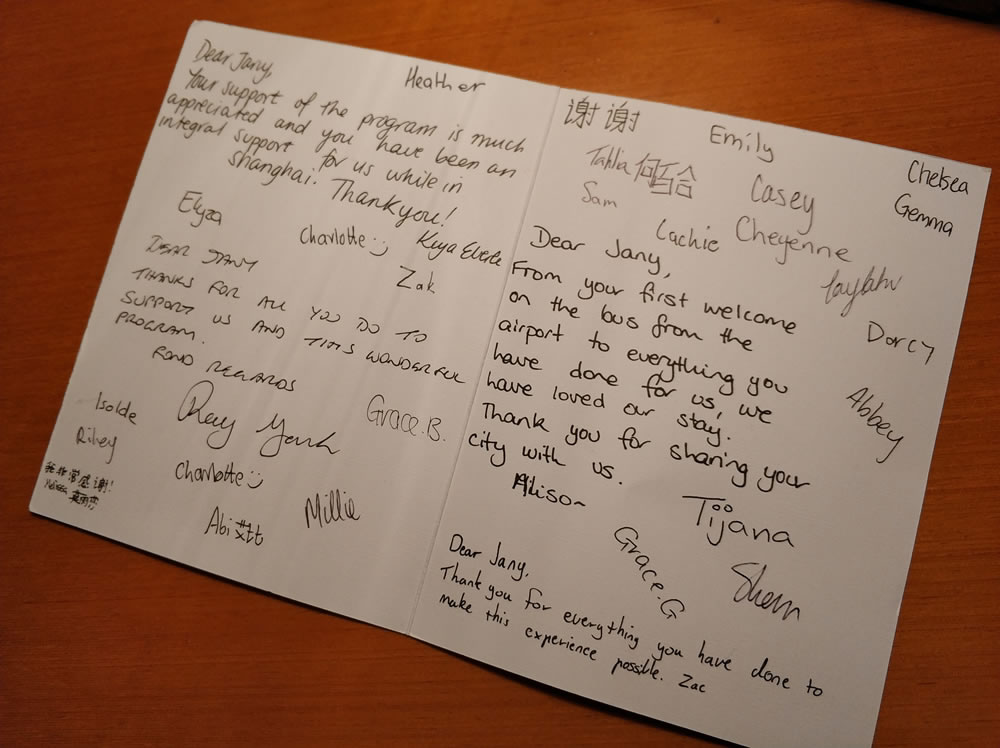 Dear Jany,
Your support of the program is much
appreciated and you have been an
integral support for us while in
Shanghai. Thankyou!
Heather
Elyza
Charlotte :)
Kuya Eberle
Zak
DEAR JANY
THANKS FOR ALL YOU DO TO
SUPPORT US AND THIS WONDERFUL
PROGRAM.
FOND REGARDS
Ray York
Grace.B.
Isolde
Riley
Charlotte :)
我非常感谢!
Melissa
Abi
Millie
谢谢
Emily
Chelsea
Gemma
Tahlia 何
Sam
Casey
Lachie
Cheyenne
Taylah
Dorcy
Abbey
Dear Jany,
From your first welcome
on the bus from the
airport to everything you
have done for us, we
have loved our stay.
Thank you for sharing your
city with us.
Alison
Tijana
Grace.G
Shem
Dear Jany,
Thank you for everything you have done to
make this experience possible. Zac